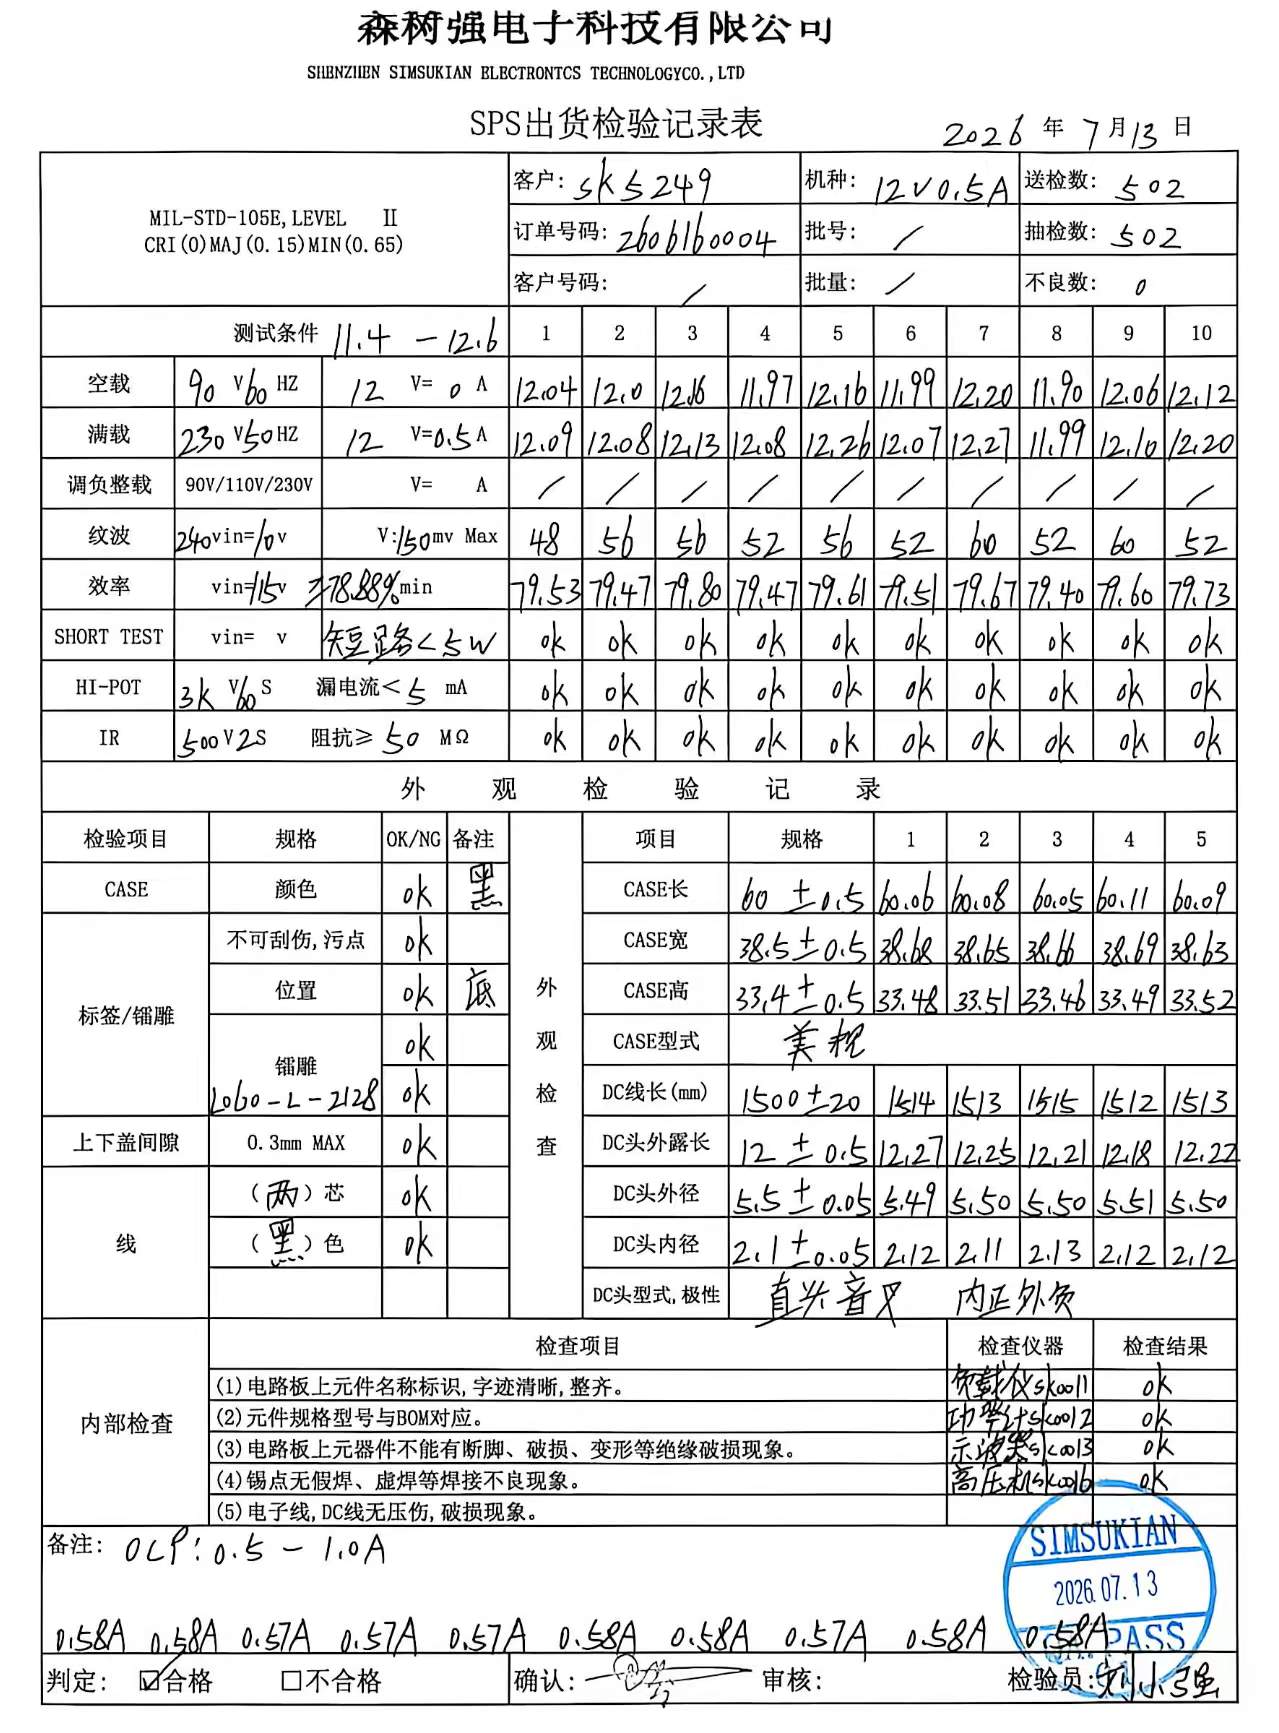 森树强电子科技有限公司
SHENZHEN SIMSUKIAN ELECTRONTCS TECHNOLOGYCO.,LTD
SPS出货检验记录表 2026 年 7 月 13 日
MIL-STD-105E,LEVEL Ⅱ
CRI(0)MAJ(0.15)MIN(0.65)
客户: SK5249 机种: 12V0.5A 送检数: 502
订单号码: 2606160004 批号: / 抽检数: 502
客户号码: / 批量: / 不良数: 0
测试条件 11.4 - 12.6 1 2 3 4 5 6 7 8 9 10
空载 90 V 60 HZ 12 V= 0 A 12.04 12.0 12.16 11.97 12.16 11.99 12.20 11.90 12.06 12.12
满载 230 V 50 HZ 12 V= 0.5 A 12.09 12.08 12.13 12.08 12.26 12.07 12.27 11.99 12.10 12.20
调负整载 90V/110V/230V V= A / / / / / / / / / /
纹波 240vin=10v V:150mv Max 48 56 56 52 56 52 60 52 60 52
效率 vin=115v ≥78.88%min 79.53 79.47 79.80 79.47 79.61 79.51 79.67 79.40 79.60 79.73
SHORT TEST vin= v 短路<5W ok ok ok ok ok ok ok ok ok ok
HI-POT 3K V 60 S 漏电流< 5 mA ok ok ok ok ok ok ok ok ok ok
IR 500 V 2 S 阻抗≥ 50 MΩ ok ok ok ok ok ok ok ok ok ok
外观检验记录
检验项目 规格 OK/NG 备注 外观检查 项目 规格 1 2 3 4 5
CASE 颜色 ok 黑 CASE长 60 ±0.5 60.06 60.08 60.05 60.11 60.09
标签/镭雕 不可刮伤,污点 ok CASE宽 38.5±0.5 38.68 38.65 38.66 38.69 38.63
位置 ok 底 CASE高 33.4±0.5 33.48 33.51 33.46 33.49 33.52
镭雕 ok CASE型式 美规
L060-L-2128 ok DC线长(mm) 1500±20 1514 1513 1515 1512 1513
上下盖间隙 0.3mm MAX ok DC头外露长 12 ±0.5 12.27 12.25 12.21 12.18 12.22
线 (两)芯 ok DC头外径 5.5±0.05 5.49 5.50 5.50 5.51 5.50
(黑)色 ok DC头内径 2.1±0.05 2.12 2.11 2.13 2.12 2.12
DC头型式,极性 直头音叉 内正外负
内部检查 检查项目 检查仪器 检查结果
(1)电路板上元件名称标识,字迹清晰,整齐。 负载仪SK0011 ok
(2)元件规格型号与BOM对应。 功率计SK0012 ok
(3)电路板上元器件不能有断脚、破损、变形等绝缘破损现象。 示波器SK0013 ok
(4)锡点无假焊、虚焊等焊接不良现象。 高压机SK0016 ok
(5)电子线,DC线无压伤,破损现象。
备注: OCP: 0.5 - 1.0A
SIMSUKIAN
2026.07.13
PASS
0.58A 0.58A 0.57A 0.57A 0.57A 0.58A 0.58A 0.57A 0.58A 0.58A
判定: ☑合格 □不合格 确认: 审核: 检验员: 刘小强